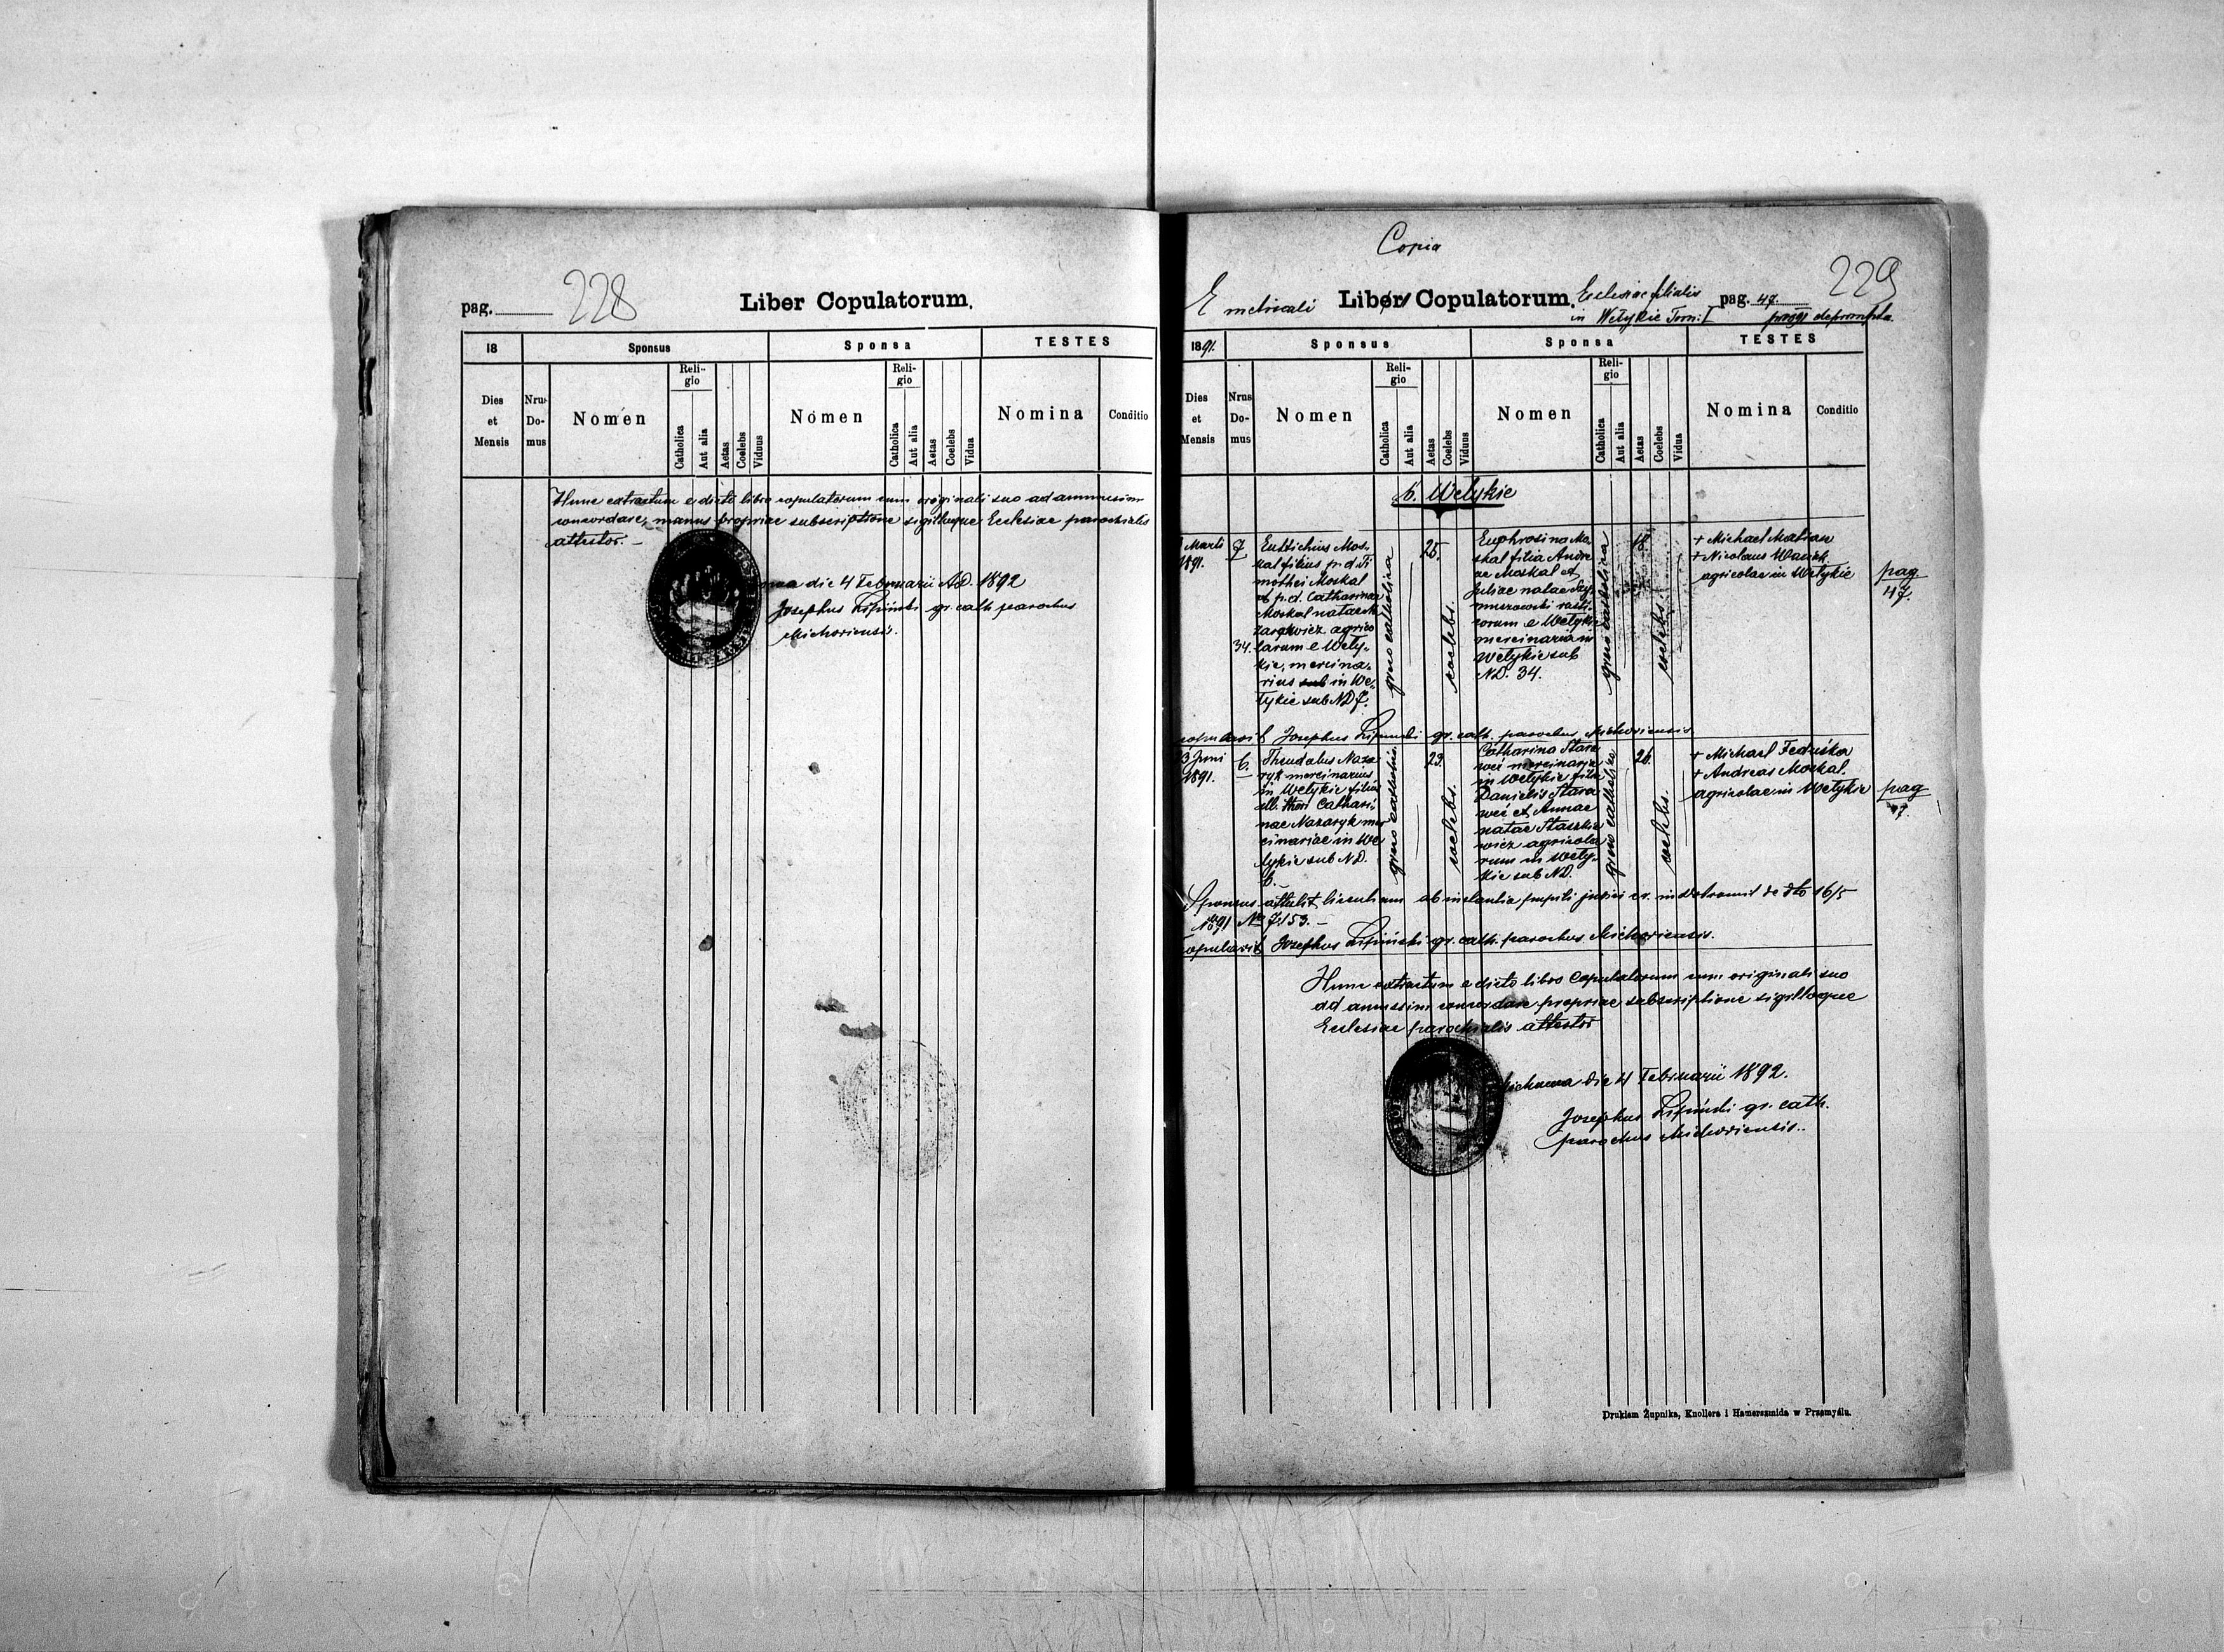 pag. 228
Liber Copulatorum.
18
Sponsus
Sponsa
TESTES
Dies et Mensis
Nrus Domus
Nomen
Religio
Catholica
Aut alia
Aetas
Coelebs
Viduus
Nomen
Religio
Catholica
Aut alia
Aetas
Coelebs
Vidua
Nomina
Conditio
Hunc extractum e dicto libro copulatorum cum originali suo ad amussim
concordare, manus propriae subscriptione sigilloque Ecclesiae parochialis
attestor. —
die 4 Februarii A.D. 1892
Josephus Lipiński gr. cath. parochus
Michoviensis.
Copia
229
E metricali Libri Copulatorum. Ecclesiae filialis pag. 47.
in Wełykie Tom: I deprompta.
1891.
Sponsus
Sponsa
TESTES
Dies et Mensis
Nrus Domus
Nomen
Religio
Catholica
Aut alia
Aetas
Coelebs
Viduus
Nomen
Religio
Catholica
Aut alia
Aetas
Coelebs
Vidua
Nomina
Conditio
6. Wełykie
Marti
1891.
7
34.
Euttichius Mos-
kal filius p. d. Ti
mothei Moskal
et p. d. Catharinae
Moskal natae
agrico
larum e Wely-
kie, mercina-
rius sub in We-
łykie sub ND 7.
graeco catholica
25.
coelebs.
Euphrosina Mo
skal filia Andre
ae Moskal et
Juliae natae
rusti-
corum e Wełykie
mercinaria in
Wełykie sub
ND. 34.
graeco catholica
18.
coelebs.
+ Michael
+ Nicolaus
agricolae in Wełykie
pag
47.
copulavit Josephus Lipiński gr. cath. parochus Michoviensis
3 Juni
1891.
6.
Theudatus Naza
ryk mercinarius
in Wełykie filius
ill. thori Cathari-
nae Nazaryk mer
cinariae in We
łykie sub ND.
6. —
graeco catholica
23.
coelebs.
Catharina Stara
wei mercinaria
in Wełykie filia
Danielis Stara
wei et Annae
natae Staszkie
wicz agricola
rum in Wely-
kie sub ND.
graeco catholica
26.
coelebs.
+ Michael Fedziska
+ Andreas Moskal.
agricolae in Wełykie
pag
47.
Sponsus attulit licentiam ab instantia pupili in Dobromil de dto 16/5
1891 No 7153. —
Copulavit Josephus Lipiński gr. cath. parochus Michoviensis.
Hunc extractum e dicto libro Copulatorum cum originali suo
ad amussim concordare propriae subscriptione sigilloque
Ecclesiae parochialis attestor
die 4 Februarii 1892.
Josephus Lipiński gr. cath.
parochus Michoviensis.
Drukiem Żupnika, Knollera i Hamerszmida w Przemyślu.